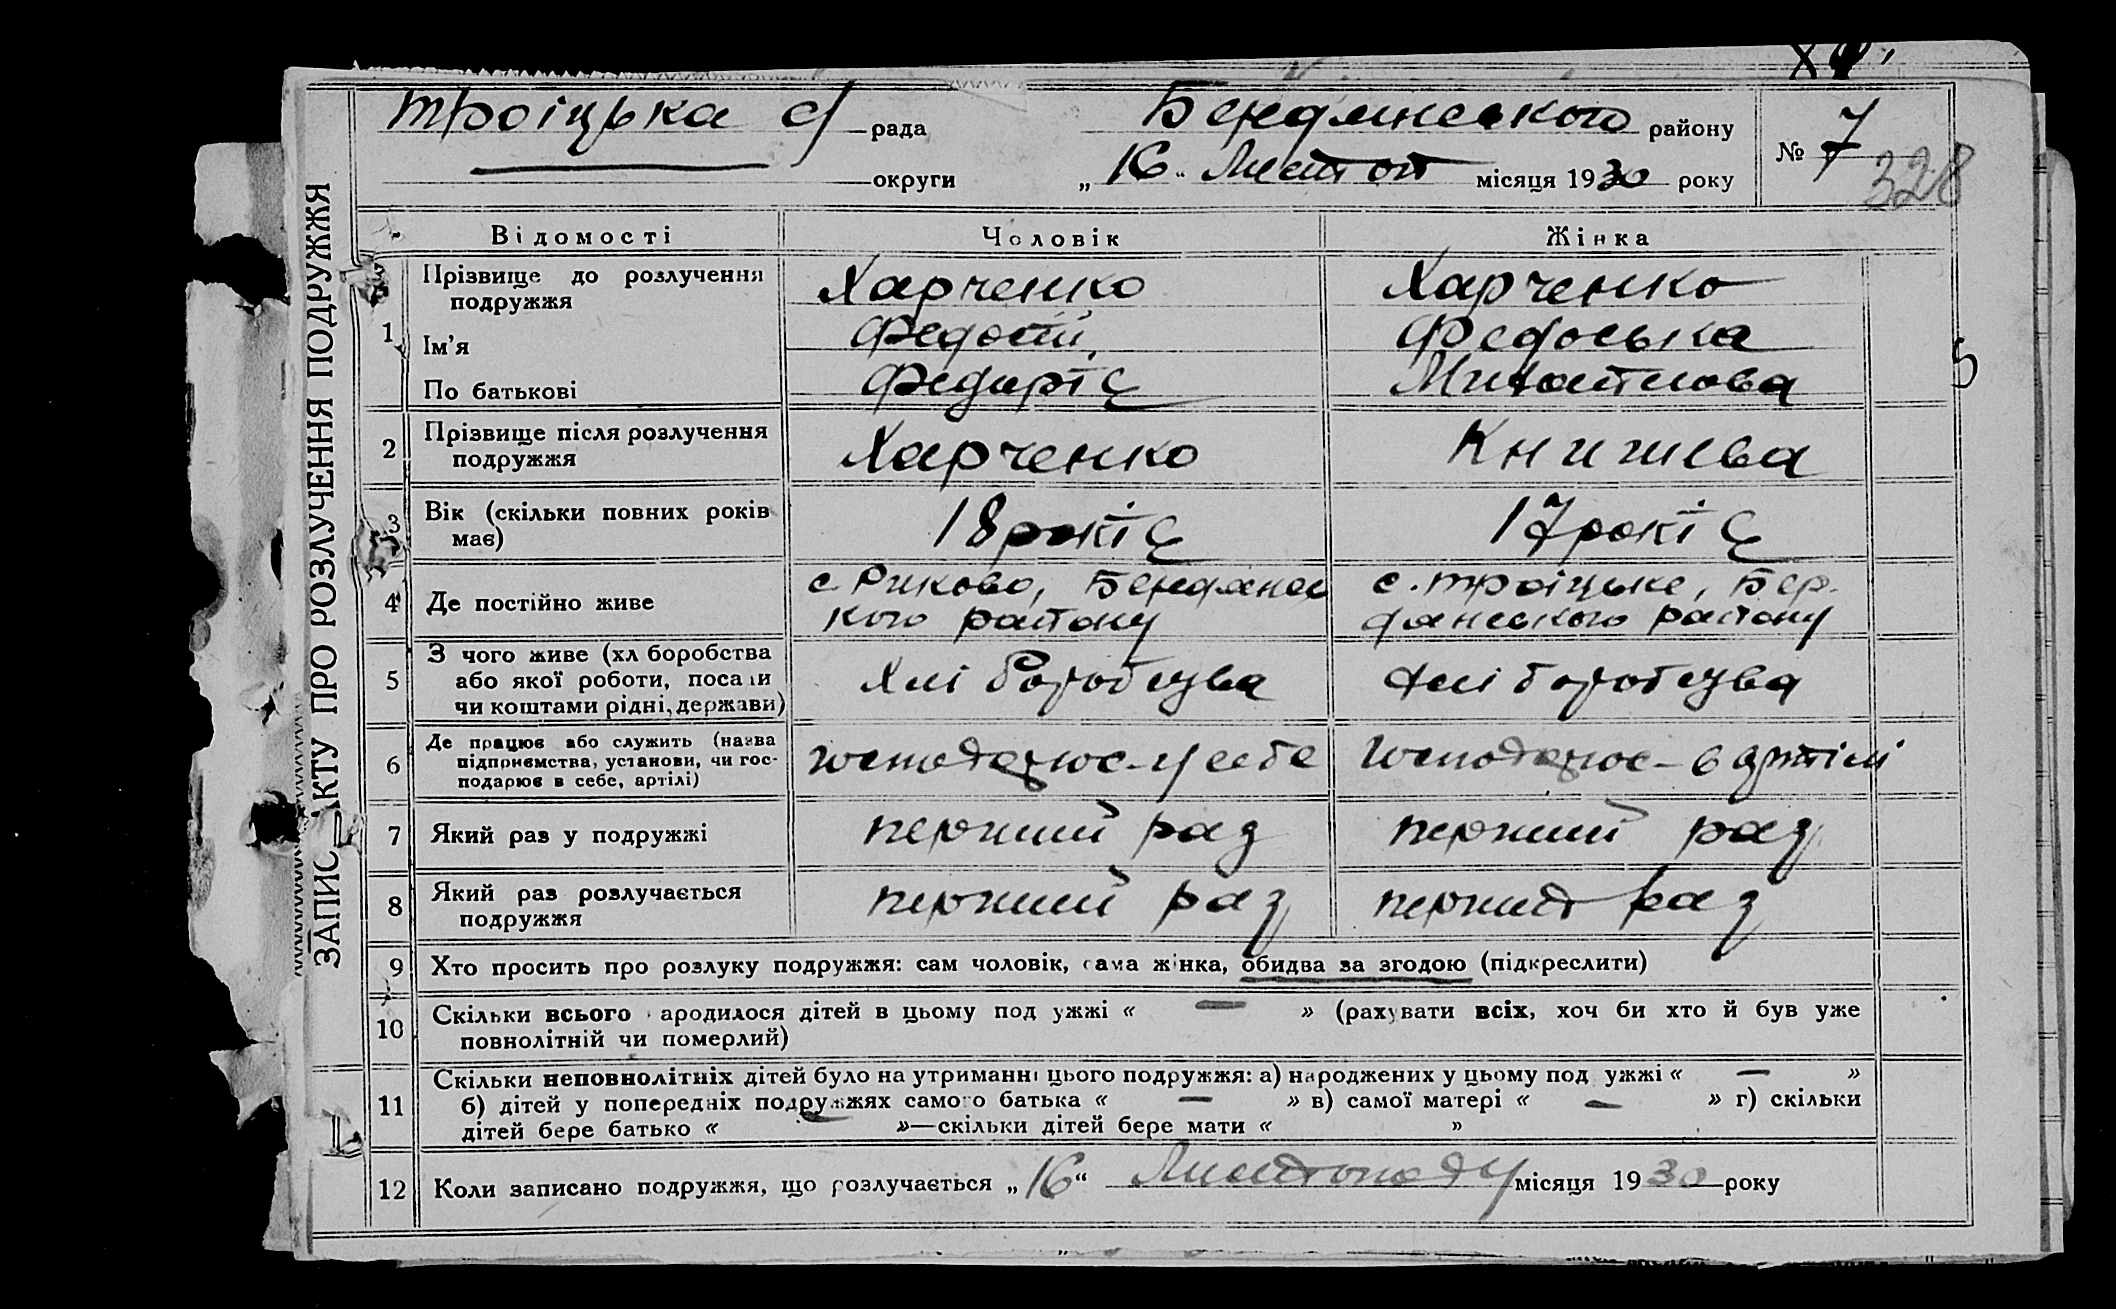 троіцька с/ рада
Бердянського району
№ 7
округи
„ 16 “ Листоп місяця 1930 року
328
ЗАПИС АКТУ ПРО РОЗЛУЧЕННЯ ПОДРУЖЖЯ
Відомості Чоловік Жінка
1 Прізвище до розлучення подружжя Харченко Харченко
Ім'я Федосій Федоська
По батькові
2 Прізвище після розлучення подружжя Харченко
3 Вік (скільки повних років має) 18 років 17 років
4 Де постійно живе
с. Риково, Бердянсь с. троіцьке, Бер-
кого району дянського району
5 З чого живе (хліборобства
або якої роботи, посади
чи коштами рідні, держави)
Хліборобства Хліборобства
6 Де працює або служить (назва
підприємства, установи, чи гос-
подарює в себе, артілі)
господарює - у себе господарює - в артілі
7 Який раз у подружжі перший раз перший раз
8 Який раз розлучається
подружжя
перший раз перший раз
9 Хто просить про розлуку подружжя: сам чоловік, сама жінка, обидва за згодою (підкреслити)
10 Скільки всього народилося дітей в цьому подружжі « — » (рахувати всіх, хоч би хто й був уже
повнолітній чи померлий)
11 Скільки неповнолітніх дітей було на утриманні цього подружжя: а) народжених у цьому подружжі « — »
б) дітей у попередніх подружжях самого батька « — » в) самої матері « — » г) скільки
дітей бере батько « »—скільки дітей бере мати « »
12 Коли записано подружжя, що розлучається „ 16 “ Листопаду місяця 1930 року